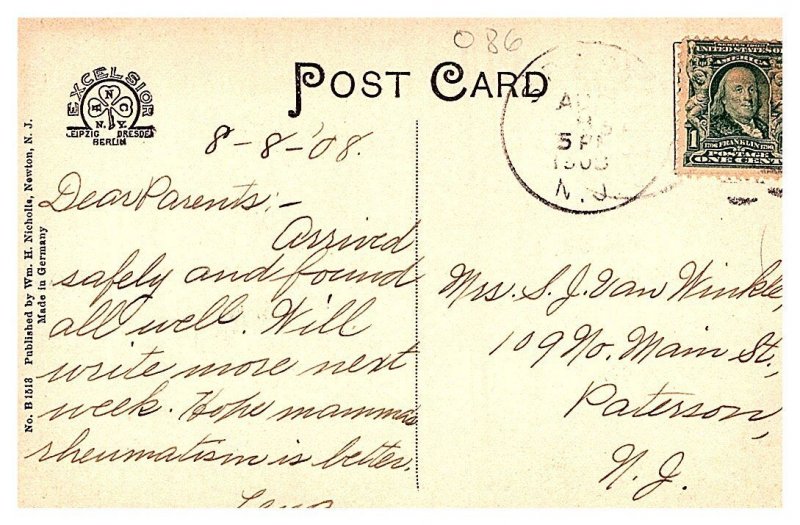 086
POST CARD
EXCELSIOR
N.Y.
LEIPZIG DRESDEN
BERLIN
No. B 1513 Published by Wm. H. Nicholls, Newton, N. J.
Made in Germany
5 PM
1908
N.J.
UNITED STATES OF
AMERICA
1
FRANKLIN
POSTAGE
ONE CENT
8-8-'08.
Dear Parents:-
Arrived
safely and found
all well. Will
write more next
week. Hope mamma's
rheumatism is better.
Mrs. S. J. Van Winkle,
109 No. Main St,
Paterson,
N. J.